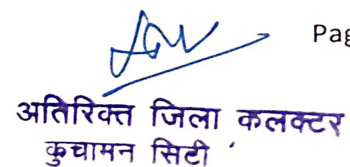 Pag
अतिरिक्त जिला कलक्टर
कुचामन सिटी